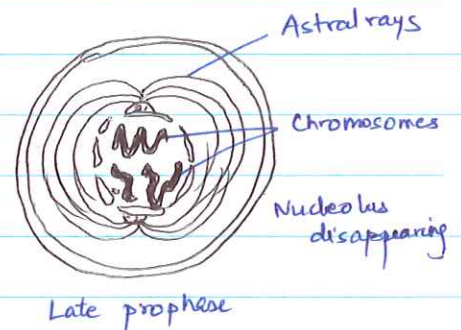 Astral rays
Chromosomes
Nucleolus
disappearing
Late prophase